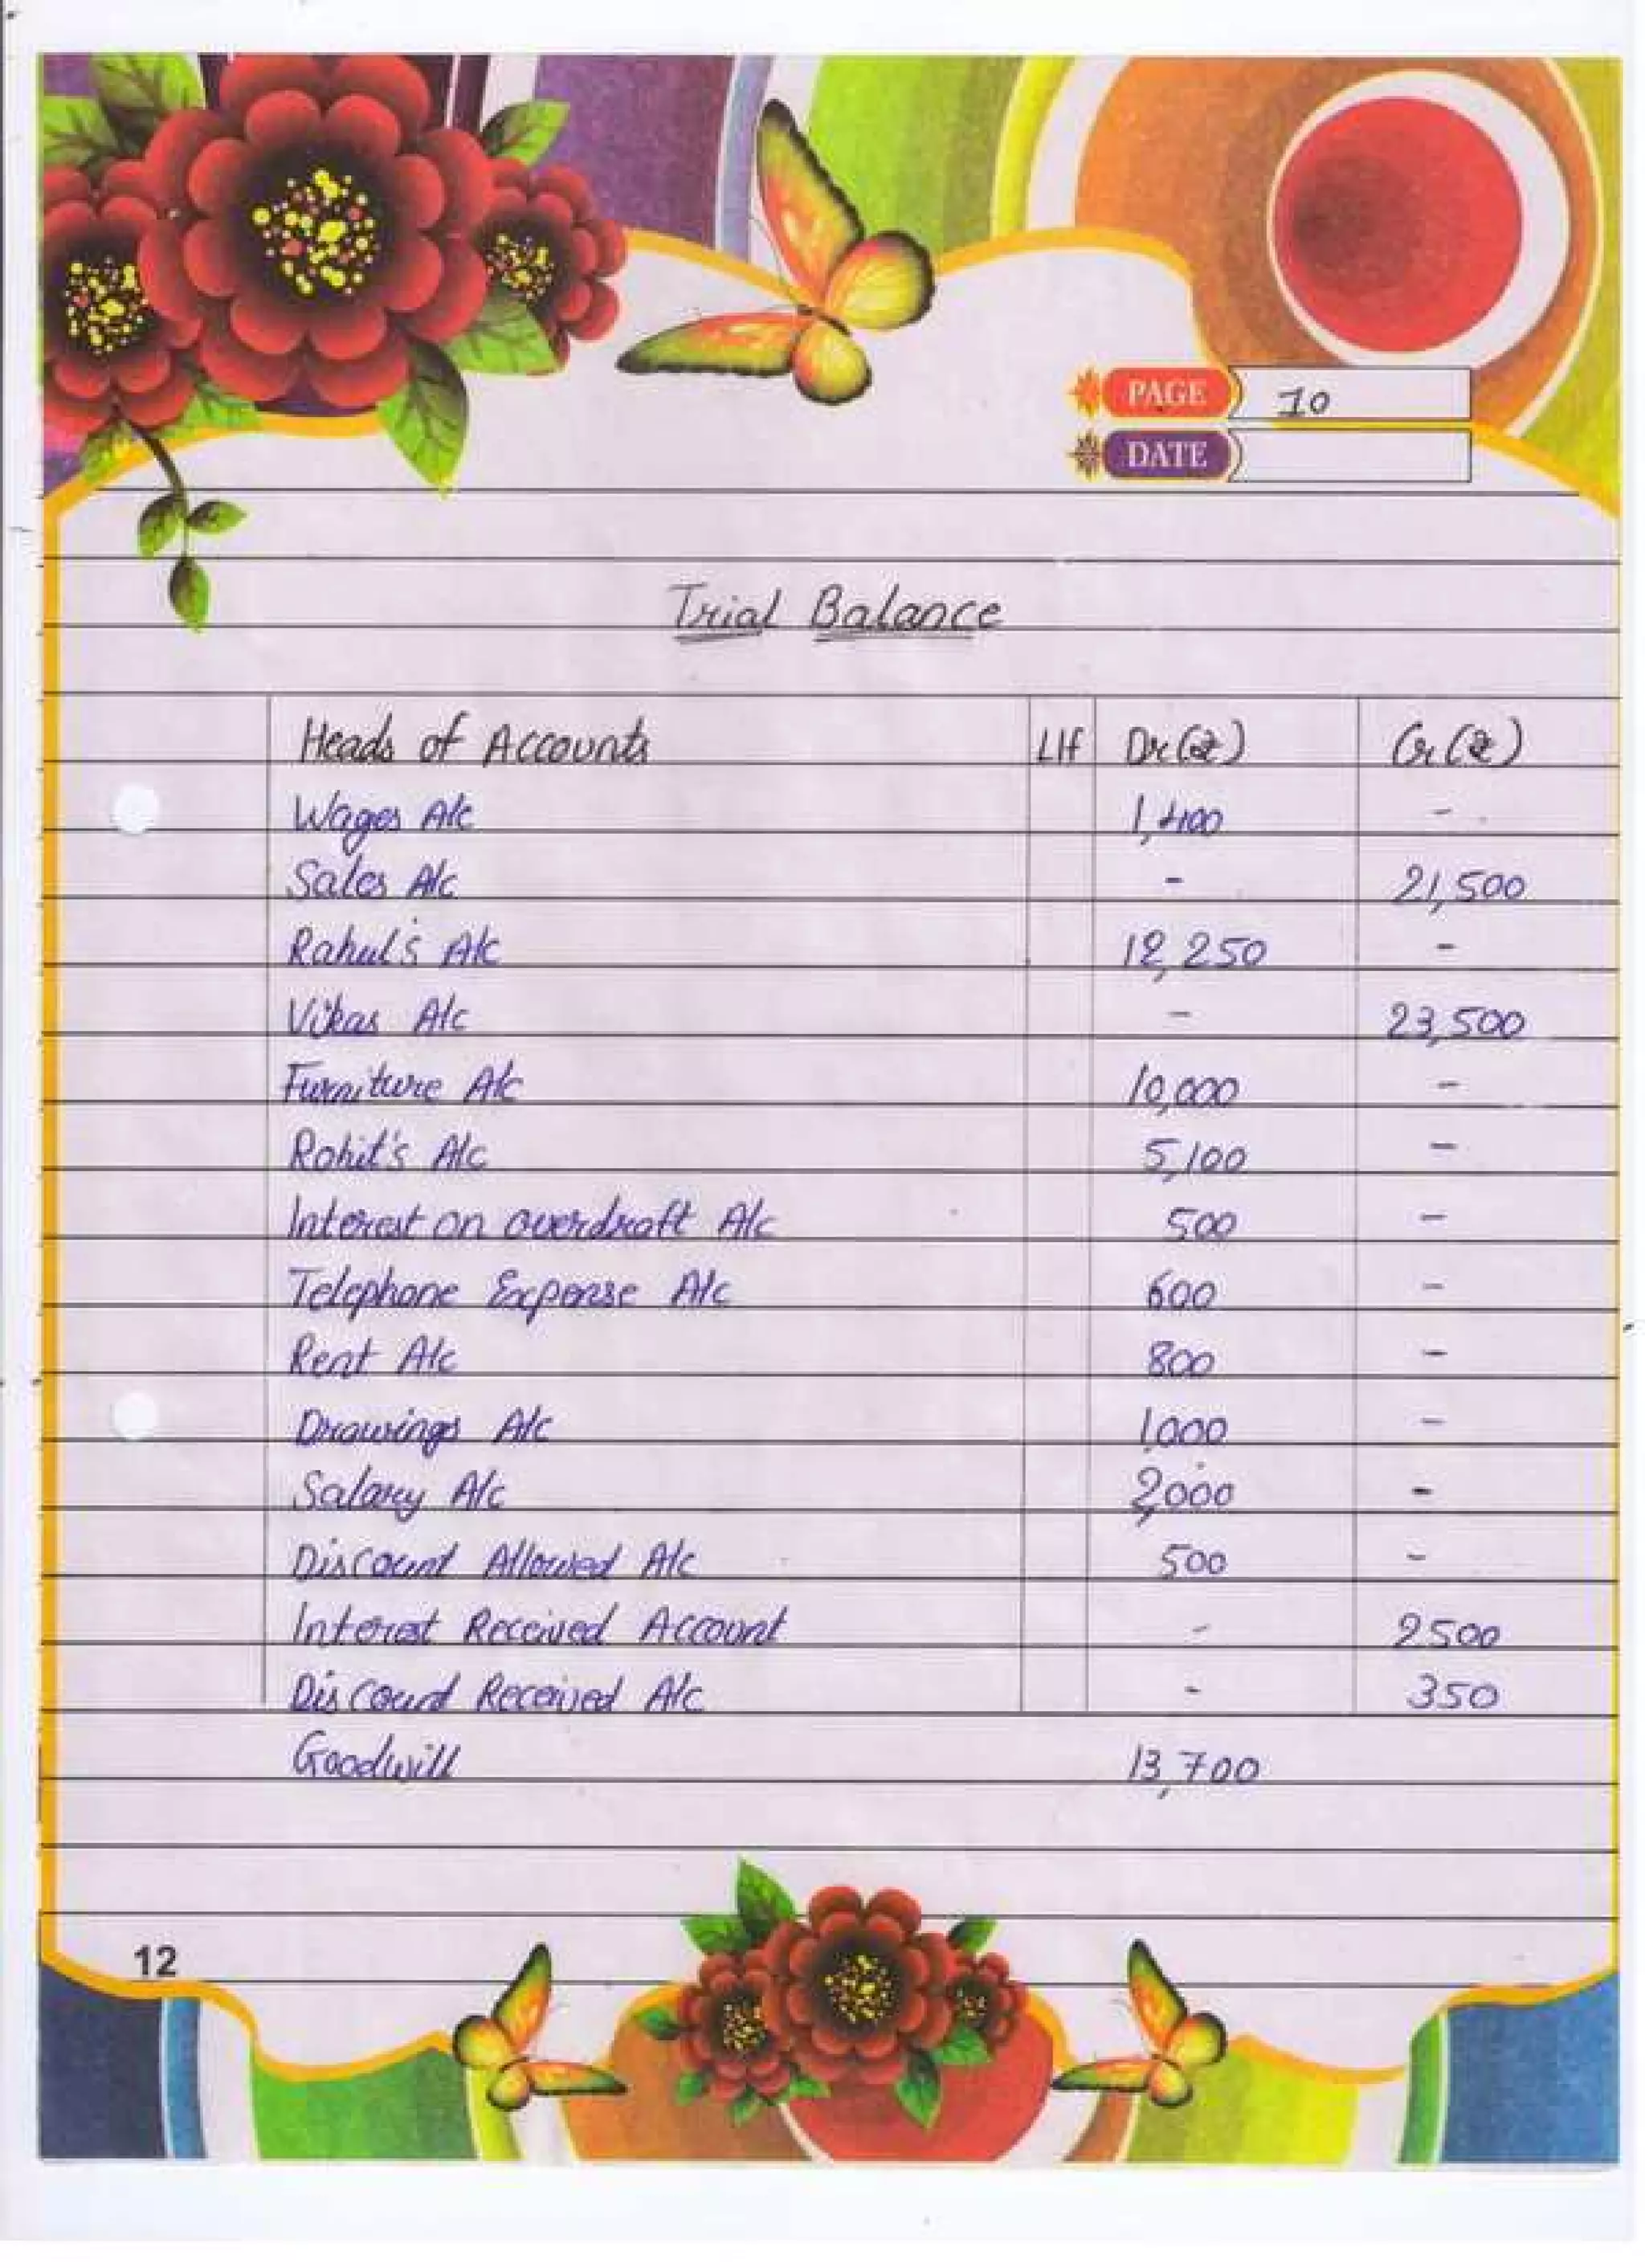 PAGE 10
DATE
Trial Balance
Heads of Accounts L/f Dr(₹) Cr(₹)
Wages A/c 1,400 -
Sales A/c - 21,500
Rahul's A/c 12,250 -
Vikas A/c - 23,500
Furniture A/c 10,000 -
Rohit's A/c 5,100 -
Interest on overdraft A/c 500 -
Telephone Expense A/c 600 -
Rent A/c 800 -
Drawings A/c 1,000 -
Salary A/c 2,000 -
Discount Allowed A/c 500 -
Interest Received Account - 2500
Discount Received A/c - 350
Goodwill 13,700
12